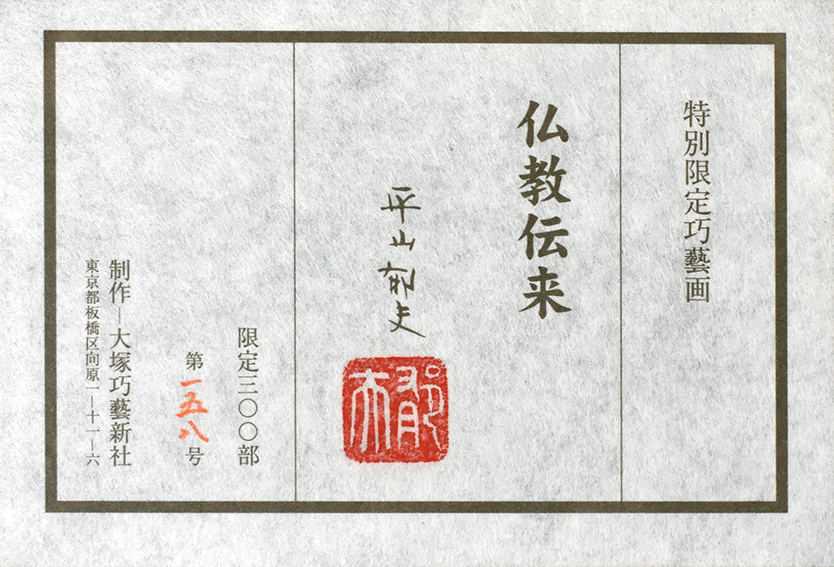 特別限定巧藝画
仏教伝来
平山郁夫
郁夫
限定三〇〇部
第一五八号
制作―大塚巧藝新社
東京都板橋区向原一―十一―六